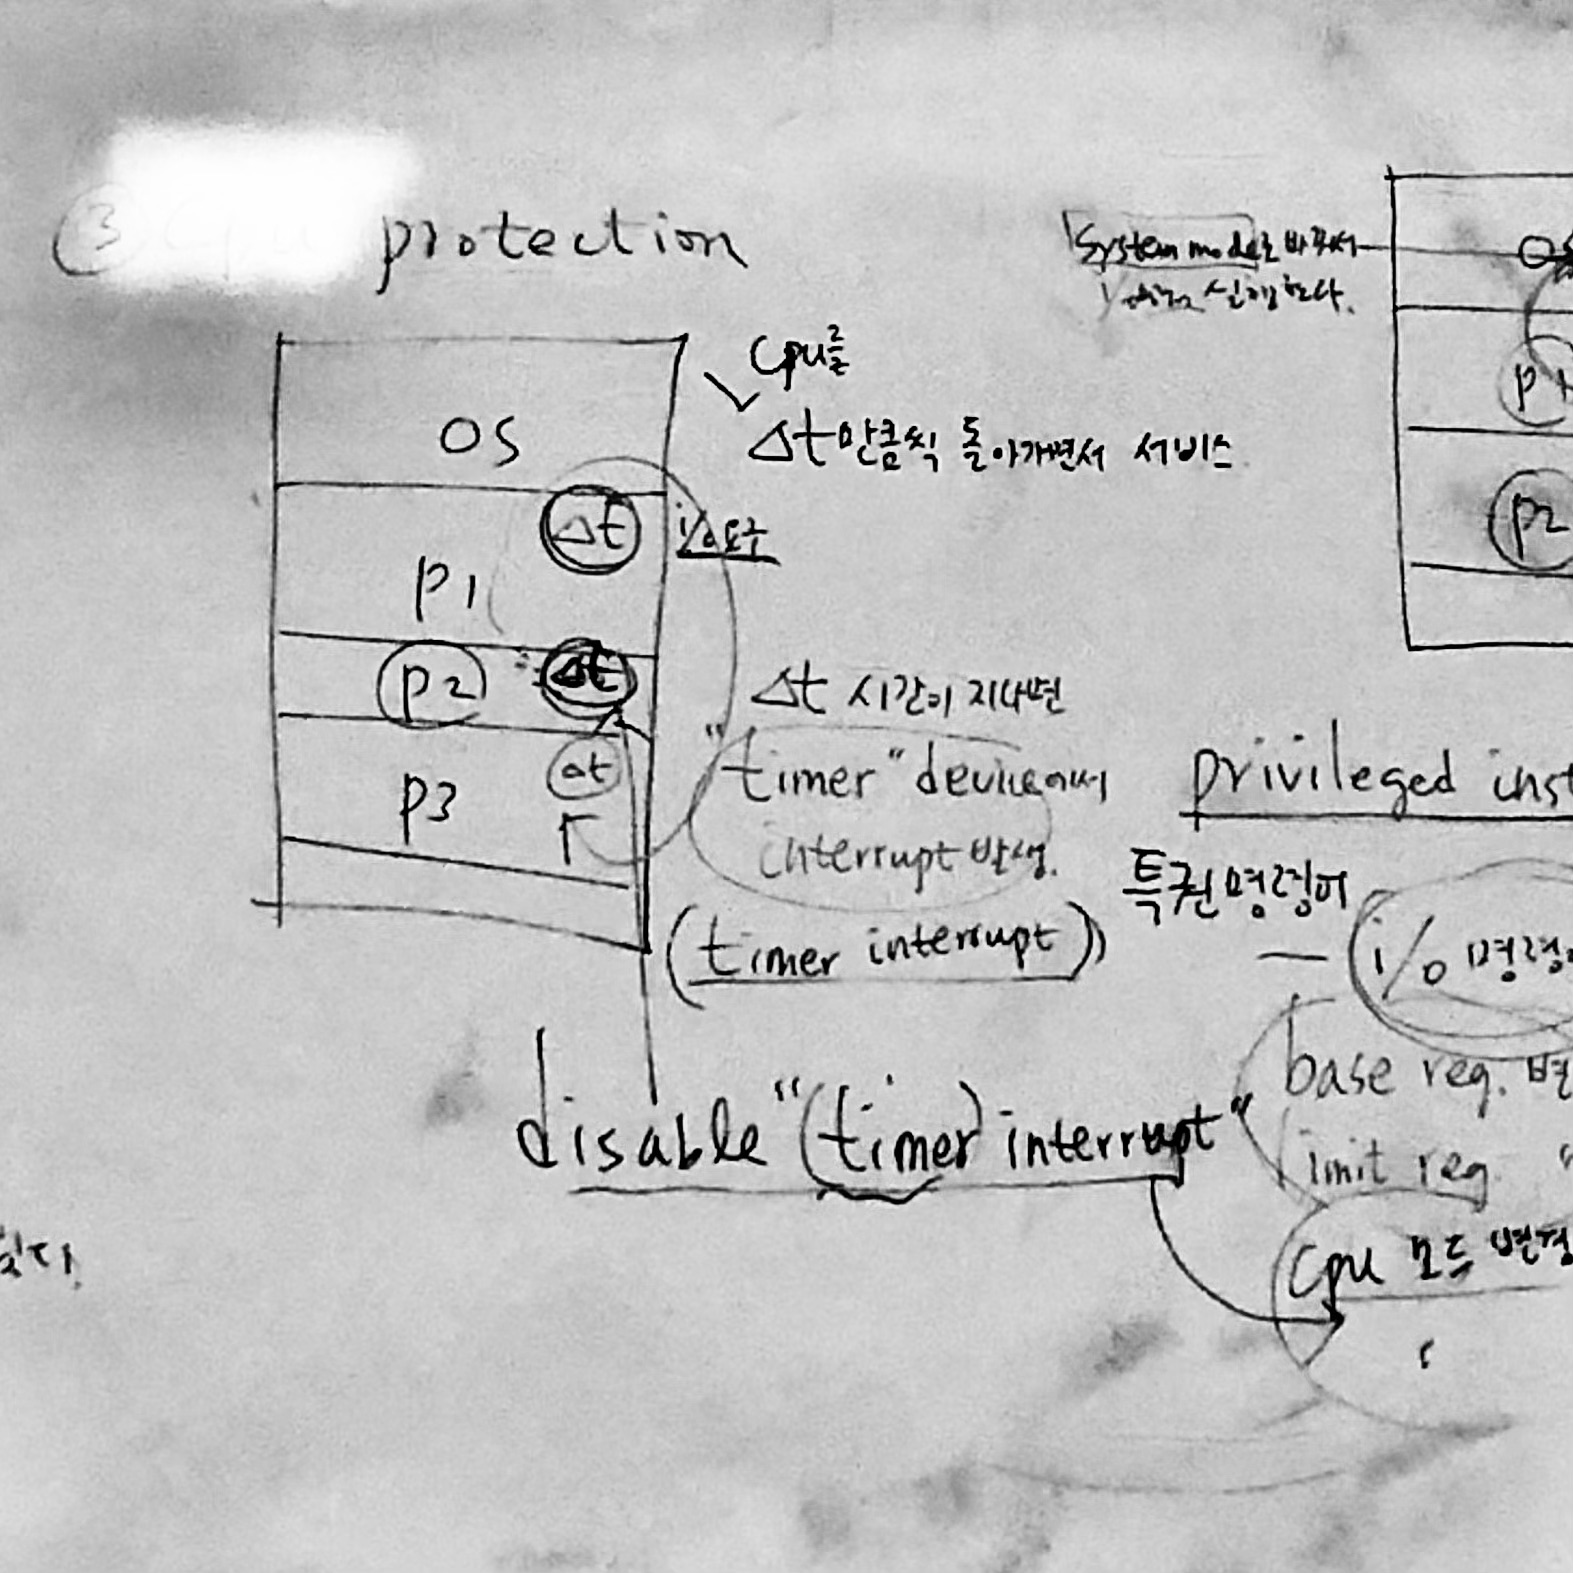 ③ cpu protection
OS
p1
Δt
i/o 요구
p2
Δt
p3
Δt
cpu를
Δt 만큼씩 돌아가면서 서비스
Δt 시간이 지나면
"timer" device에서
interrupt 발생.
(timer interrupt)
disable "(timer) interrupt"
System mode로 바꾸어서
실행한다.
OS
p1
p2
privileged inst
특권명령어
— i/o 명령어
base reg. 변
limit reg. "
cpu 모드 변경